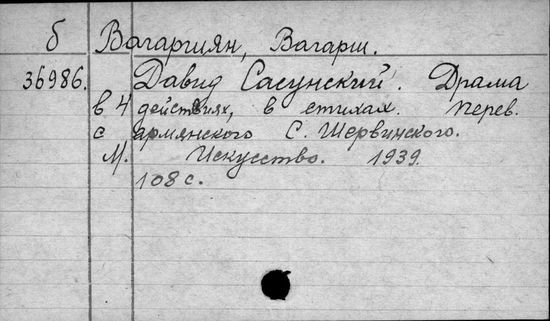 б Вагаршян, Вагарш.
36986. Давид Сасунский. Драма
в 4 действиях, в стихах. Перев.
с армянского С. Шервинского.
М. Искусство. 1939.
108 с.